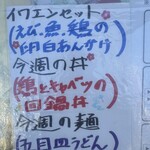 イワエンセット
(えび.魚.鶏の
卵白あんかけ)
今週の丼
(鶏とキャベツの
回鍋丼)
今週の麺
(五目皿うどん)